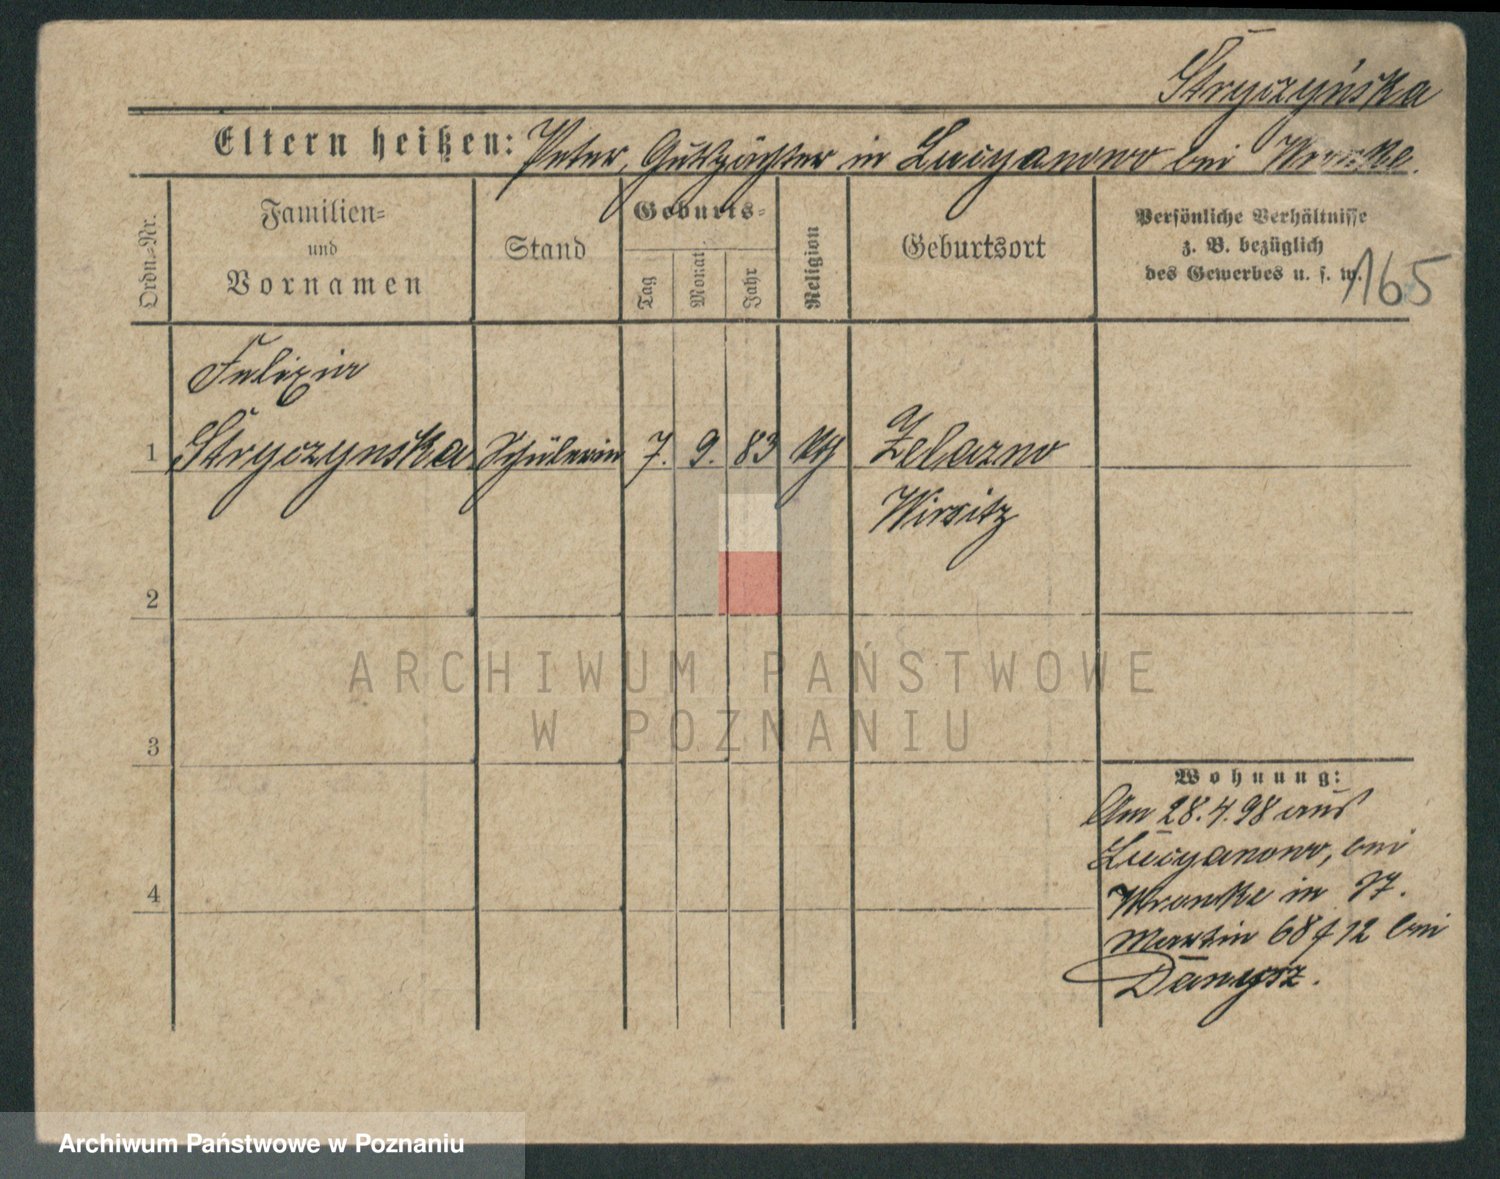 Stryczyńska
Eltern heißen: Peter, Gutspächter in Lucyanowo bei Wronke.
Ordn.-Nr.
Familien-
und
Vornamen
Stand
Geburts-
Tag
Monat
Jahr
Religion
Geburtsort
Persönliche Verhältnisse
z. B. bezüglich
des Gewerbes u. s. w.
165
Felixia
1 Stryczynska Schülerin 7. 9. 83 kth Zelazno
Wirsitz
2
3
4
Wohnung:
Am 28.4.98 aus
Lucyanowo, bei
Wronke in
Martin 68 12 bei
Danysz.
ARCHIWUM PAŃSTWOWE
W POZNANIU
Archiwum Państwowe w Poznaniu